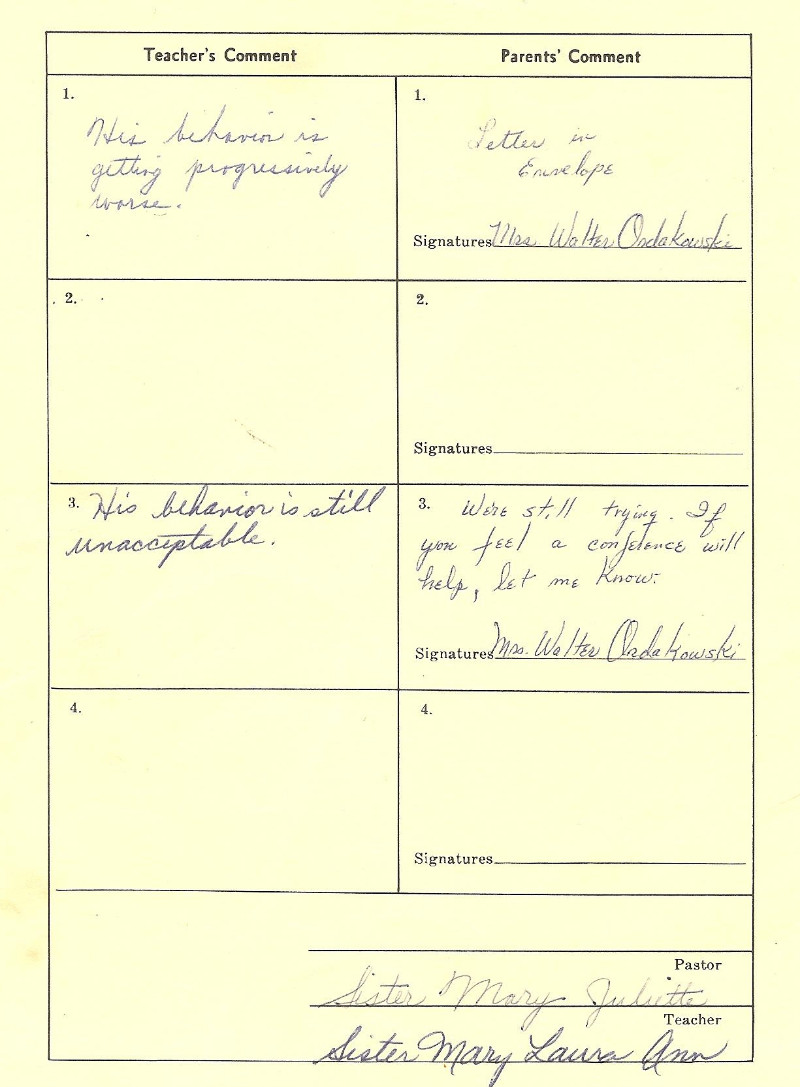 Teacher's Comment
Parents' Comment
1.
His behavior is
getting progressively
worse.
1.
Letter in
Envelope
Signatures Mrs. Walter Ordakowski
2.
2.
Signatures
3. His behavior is still
unacceptable.
3. We're still trying. If
you feel a conference will
help, let me know.
Signatures Mrs. Walter Ordakowski
4.
4.
Signatures
Pastor
Sister Mary Juliette
Teacher
Sister Mary Laura Ann